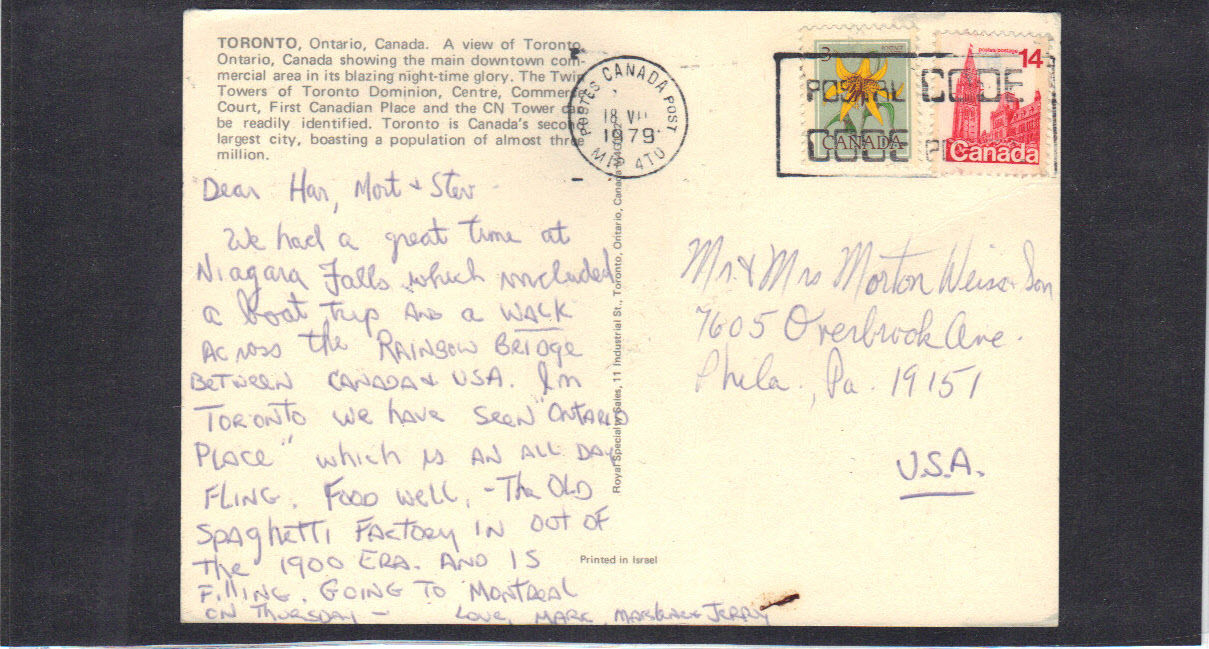 TORONTO, Ontario, Canada. A view of Toronto,
Ontario, Canada showing the main downtown com-
mercial area in its blazing night-time glory. The Twin
Towers of Toronto Dominion, Centre, Commerce
Court, First Canadian Place and the CN Tower can
be readily identified. Toronto is Canada's second
largest city, boasting a population of almost three
million.
Dear Har, Mort & Stev
We had a great time at
Niagara Falls which included
a boat trip AND a WALK
ACROSS the RAINBOW BRIDGE
BETWEEN CANADA & USA. In
TORONTO we have SEEN "ONTARIO
PLACE" which is AN ALL DAY
FLING. FOOD well, - The OLD
SPAGHETTI FACTORY IN OUT OF
the 1900 ERA. AND IS
FIllING. GOING TO MONTREAL
ON THURSDAY - LOVE, MARK, & JERRY
POSTES CANADA POST
18 VII
1979
4TU
Royal Specialty Sales, 11 Industrial St., Toronto, Ontario, Canada
Printed in Israel
POSTAL CODE
CODE
3
CANADA
postes/postage
14
Canada
Mr. & Mrs Morton Weiss & Son
7605 Overbrook Ave.
Phila., Pa. 19151
U.S.A.